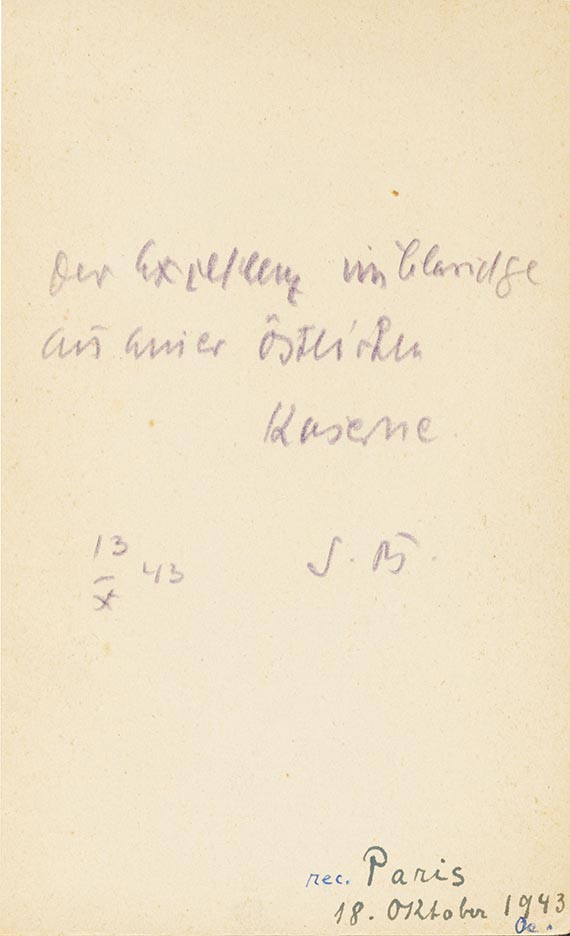 Der Exzellenz im Claridge
aus einer östlichen
Kaserne.
13
X 43
G. B.
rec. Paris
18. Oktober 1943
Oe.